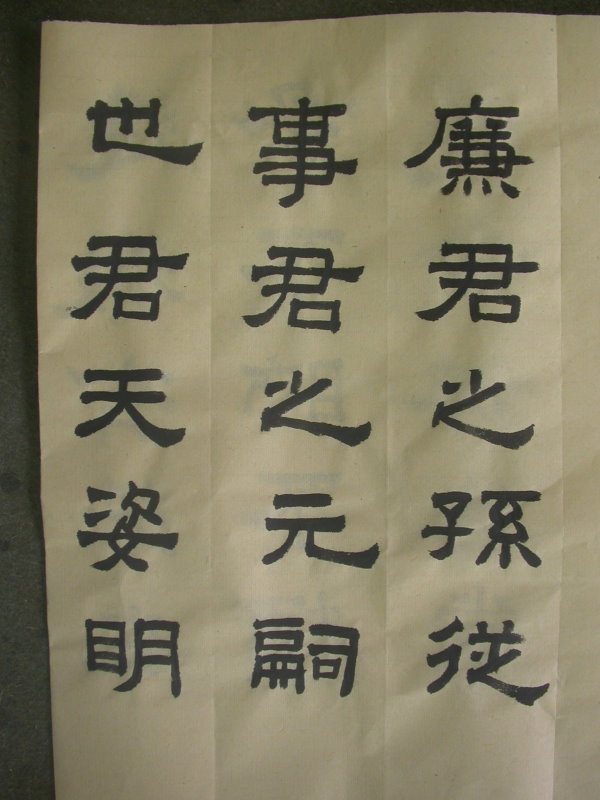 廉君之孫從
事君之元嗣
世君天姿明